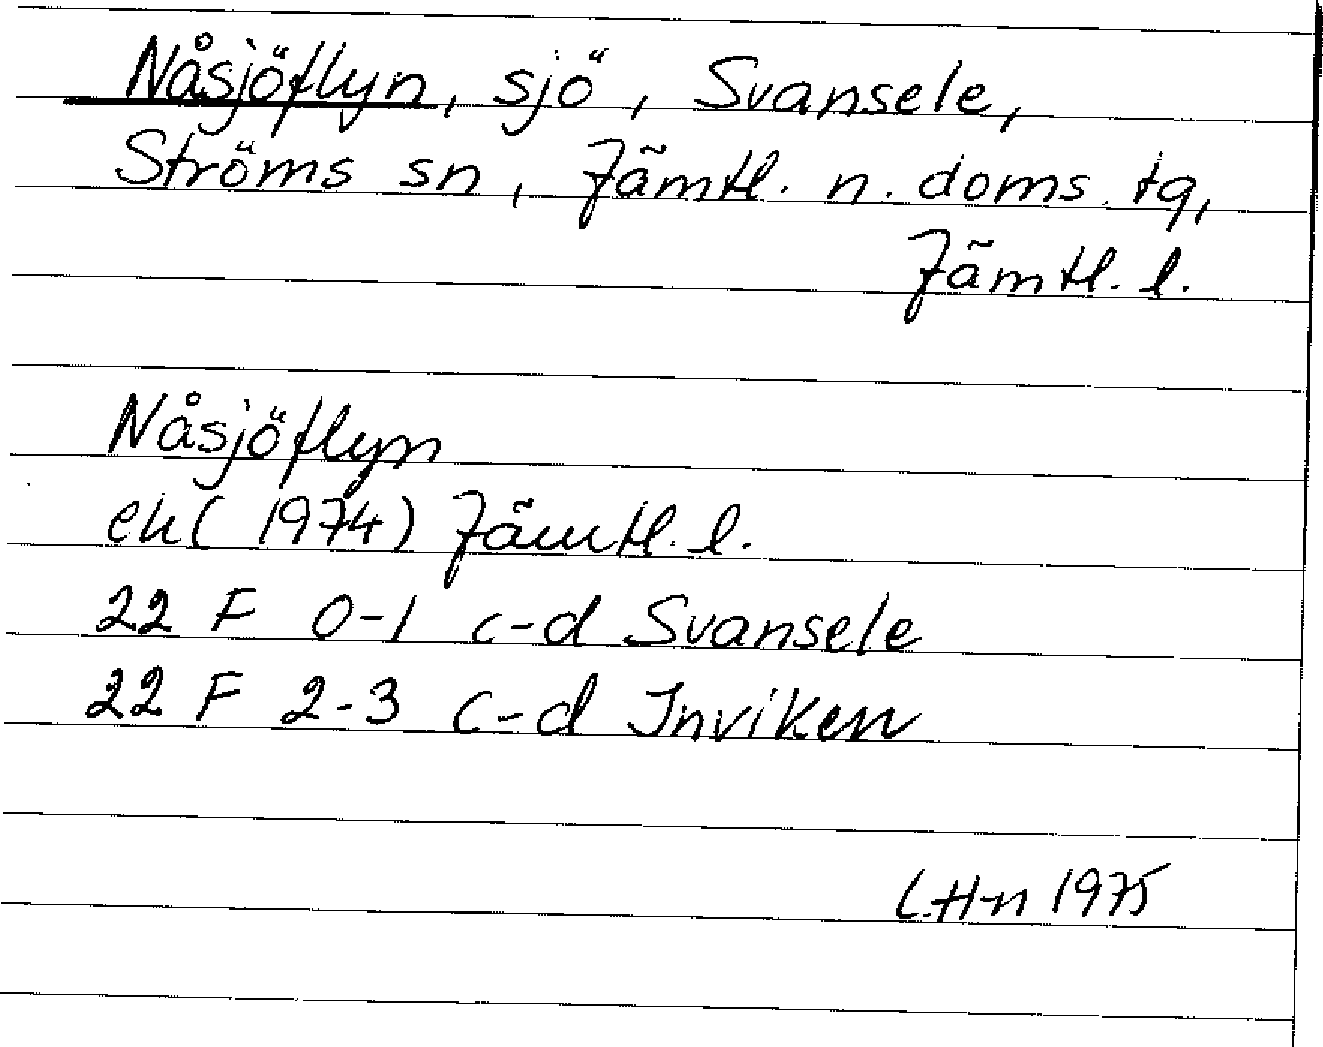 Nåsjöflyn, sjö, Svansele,
Ströms sn, Jämtl. n. doms. tg,
Jämtl. l.
Nåsjöflyn
ek (1974) Jämtl. l.
22 F 0-1 c-d Svansele
22 F 2-3 c-d Inviken
L.H-n 1975